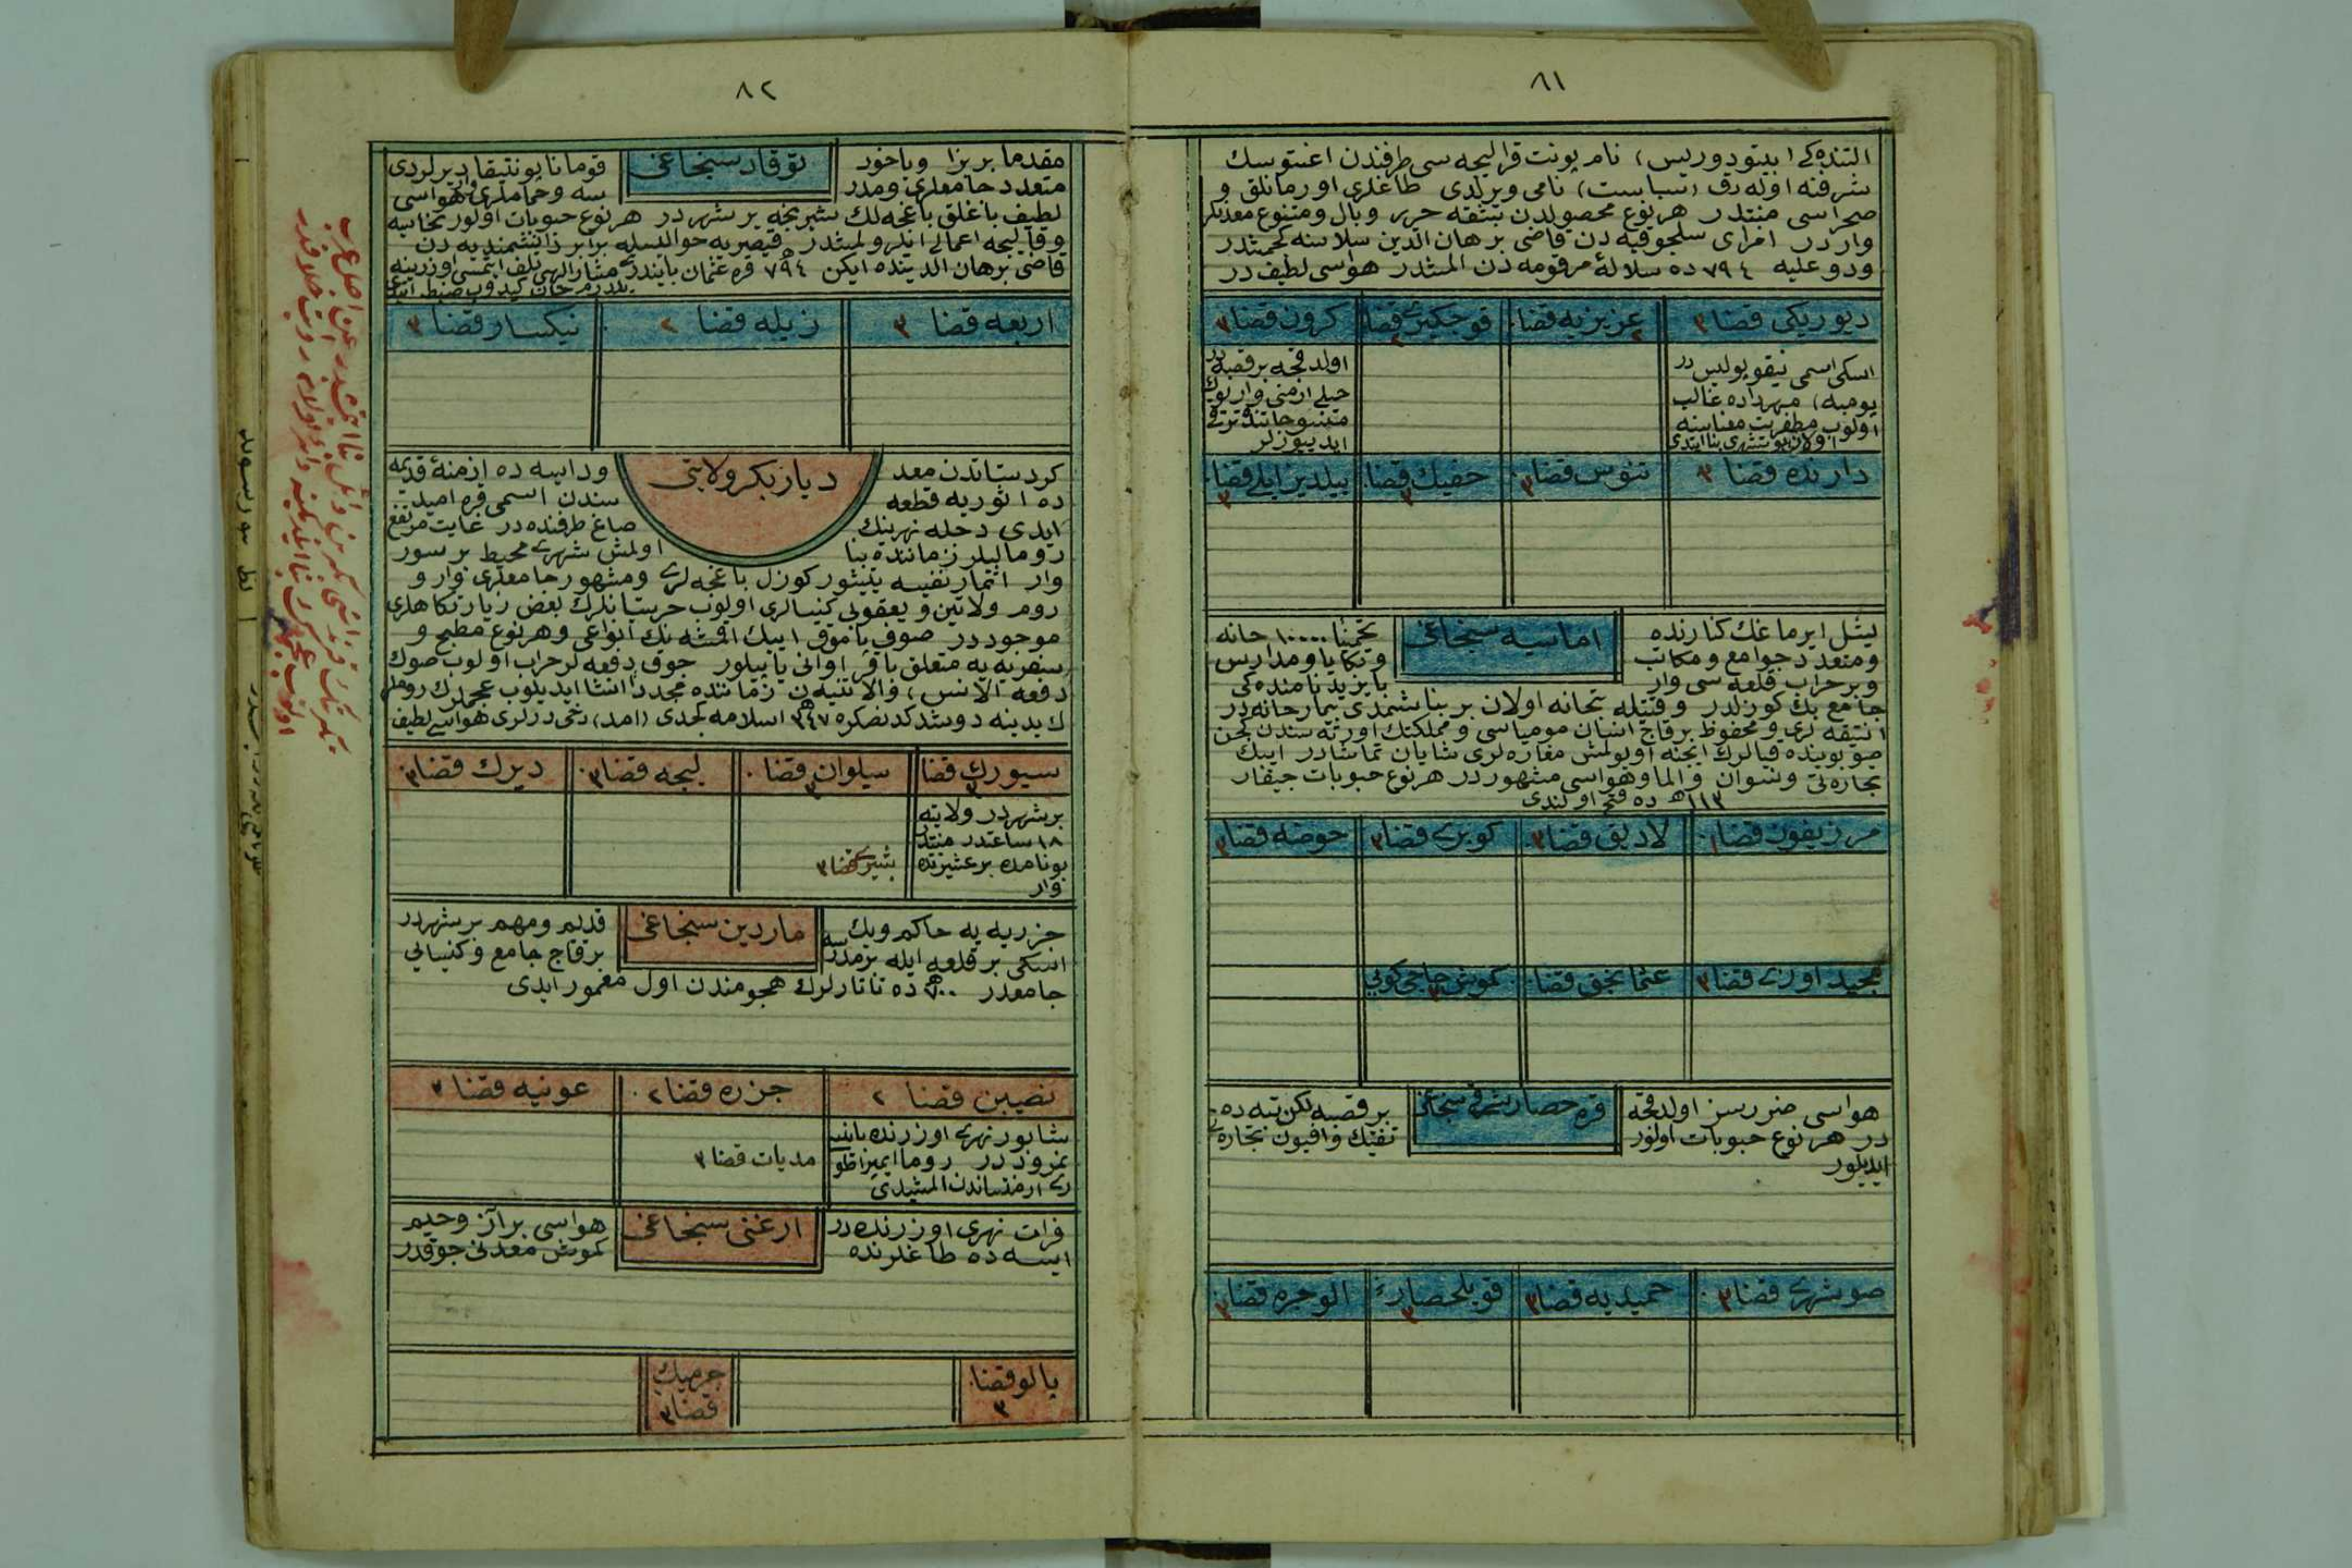 ٨١
التنده كی (بیتودوریس) نام پونت قرالیچه سی طرفندن اغستوسك
شرفنه اوله رق (سباست) نامی ویرلدی طاغلری اورمانلق و
صحراسی منتدر هر نوع محصولدن بشقه حریر و بال و متنوع معدنلر
واردر امرای سلجوقیه دن قاضی برهان الدین سلاسنه كچمشدر
ودو علیه ٧٩٤ ده سلالهٔ مرقومه دن المشدر هواسی لطیف در
دیوریكی قضا ٣
عزیزیه قضا ٢
قوچكیری قضا ٢
كرون قضا ٣
اسكی اسمی نیقوپولیس در
پومپه) مهرداده غالب
اولوب مظفریت معناسنه
اولان بو شهری بنا ایتدی
اولدقجه بر قصبه در
خیلی ارمنی وار
ایدییورلر
دارنده قضا ٣
تنوس قضا ٣
حفیك قضا ٣
ییلدیز ایلی قضا ٣
اماسیه سنجاغی
یشل ایرماغك كنارنده
تخمینا ١٠٠٠٠ خانه
ومتعدد جوامع ومكاتب
وتكایا ومدارس
وبر خراب قلعه سی وار
بایزید نامنده كی
جامع بك كوزلدر و قتیله بتخانه اولان بر بنا شمدی تیمارخانه در
انتیقه لری و محفوظ بر قاچ انسان مومیاسی و مملكتك اورته سندن كچن
صو بوینده قیالرك ایچنه اویولمش مغاره لری شایان تماشادر ایپك
تجارتی ونسوان والما وهواسی مشهوردر هر نوع حبوبات چیقار
١١٣ﻫ ده فتح اولندی
مرزیفون قضا ١
لادیق قضا ٣
كوپری قضا ٣
حوضه قضا ٣
مجید اوزی قضا ٣
عثمانجق قضا
كموش حاجی كویی ٣
قره حصار شرقی سنجاغی
هواسی ضررسز اولدقجه
بر قصبه لكن تپه ده
در هر نوع حبوبات اولور
تفتیك وافیون تجارتی
ایدیلور
صوشهری قضا ٣
حمیدیه قضا ٣
قویلحصار ٣
الوجره قضا ٣
٨٢
توقاد سنجاغی
مقدما بریزا ویاخود
قومانا پونتیقا دیرلردی
متعدد جامعلری ومدر
سه وحماملری وار هواسی
لطیف باغلق باغچه لك شیریجه بر شهردر هر نوع حبوبات اولور نحاسیه
وقالیچه اعمالی اندرو لمشدر قیصریه حوالیسیله برابر دانشمندیه دن
قاضی برهان الدینده ایكن ٧٩٤ﻫ قره عثمان بایندری مشارالیهی تلف ایتمسی اوزرینه
یلدرم خان كیدوب ضبط ایتدی
اربعه قضا ٣
زیله قضا ٢
نیكسار قضا ٣
دیاربكر ولایتی
كردستاندن معد
وداسه ده ازمنهٔ قدیمه
ده اثوریه قطعه
سندن اسمی قره امید
ایدی دجله نهرینك
صاغ طرفنده در غایت مرتفع
رومالیلر زماننده بنا
اولمش شهری محیط بر سور
وار اثمار نفیسه یتیشور كوزل باغچه لری ومشهور جامعلری وار و
روم ولاتین و یعقوبی كنیسالری اولوب خرستیانلرك بعض زیارتكاهلری
موجوددر صوف پاموق ایپك اقمشه نك انواعی وهر نوع مطبخ و
سفریه یه متعلق باقر اوانی یاپیلور چوق دفعه لر خراب اولوب صوك
دفعه (لانس) والانتیه ن زماننده مجددا انشا ایدیلوب عجملرك روملر
ك یدینه دوشدكدنصكره ٣٤٧ﻫ اسلامه كچدی (امد) دخی درلری هواسی لطیف
سیورك قضا ٣
سیلوان قضا ٣
لیجه قضا ٣
دیرك قضا ٣
بر شهردر ولایته
١٨ ساعتدر منتدر
بو نامده بر عشیرتده
وار
بشیری قضا ٣
ماردین سنجاغی
جزریه یه حاكم وپك
قدیم ومهم بر شهردر
اسكی بر قلعه ایله بر مدرسه
بر قاچ جامع وكنیسالی
جامعدر ٧٠٠ﻫ ده تاتارلرك هجومندن اول معمور ایدی
نصیبن قضا ٢
جزره قضا ٢
عونیه قضا ٣
شابور نهری اوزرنده بانیسی
نمروددر روما ایمپراطو
ری ارمنستاندن المشیدی
مدیات قضا ٣
ارغنی سنجاغی
فرات نهری اوزرنده در
هواسی بر آز وخیم
ایسه ده طاغلرنده
كموش معدنی چوقدر
پالو قضا ٣
چرمیك قضا ٣